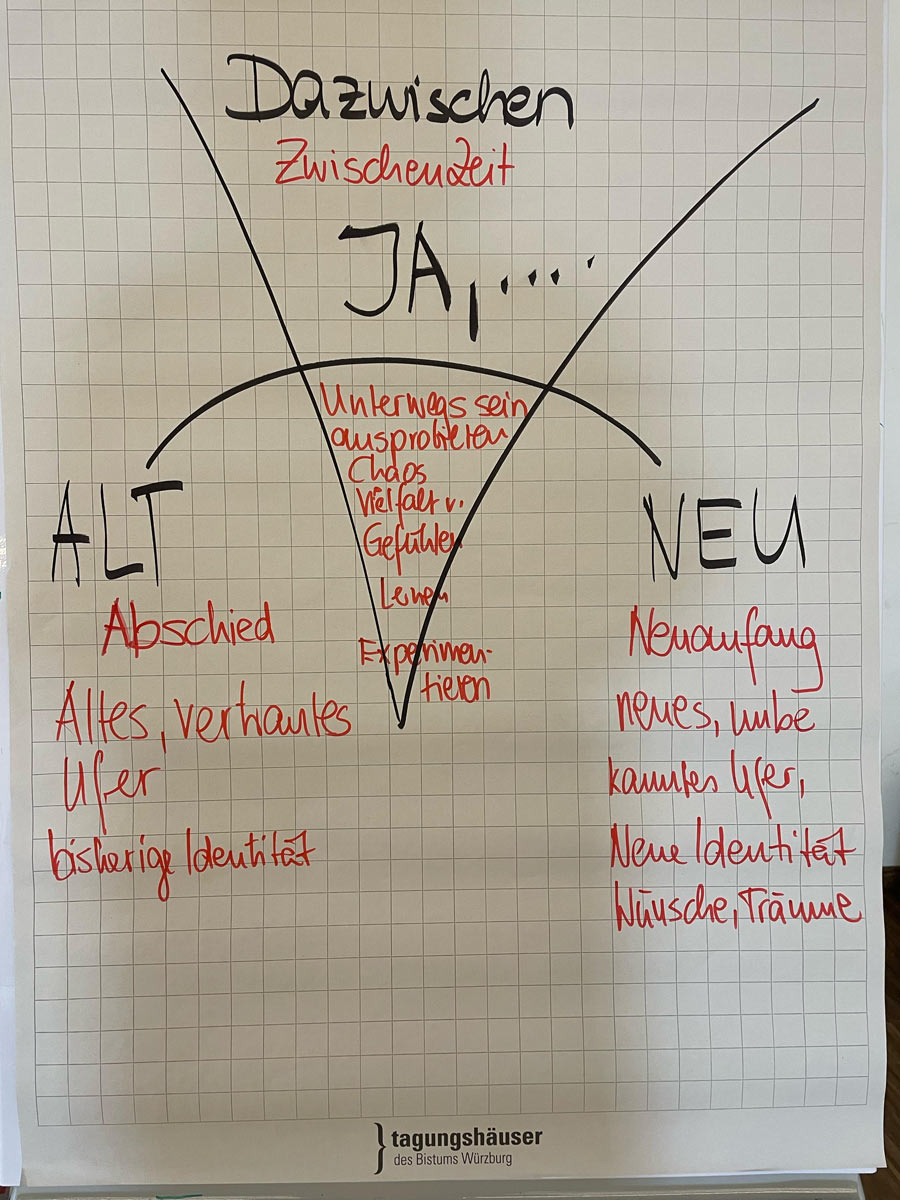 Dazwischen
Zwischenzeit
JA, ....
Unterwegs sein
ausprobieren
Chaos
Vielfalt v.
Gefühlen
Lernen
Experimen-
tieren
ALT
Abschied
Altes, vertrautes
Ufer
bisherige Identität
NEU
Neuanfang
neues, unbe
kanntes Ufer,
Neue Identität
Wünsche, Träume
tagungshäuser
des Bistums Würzburg